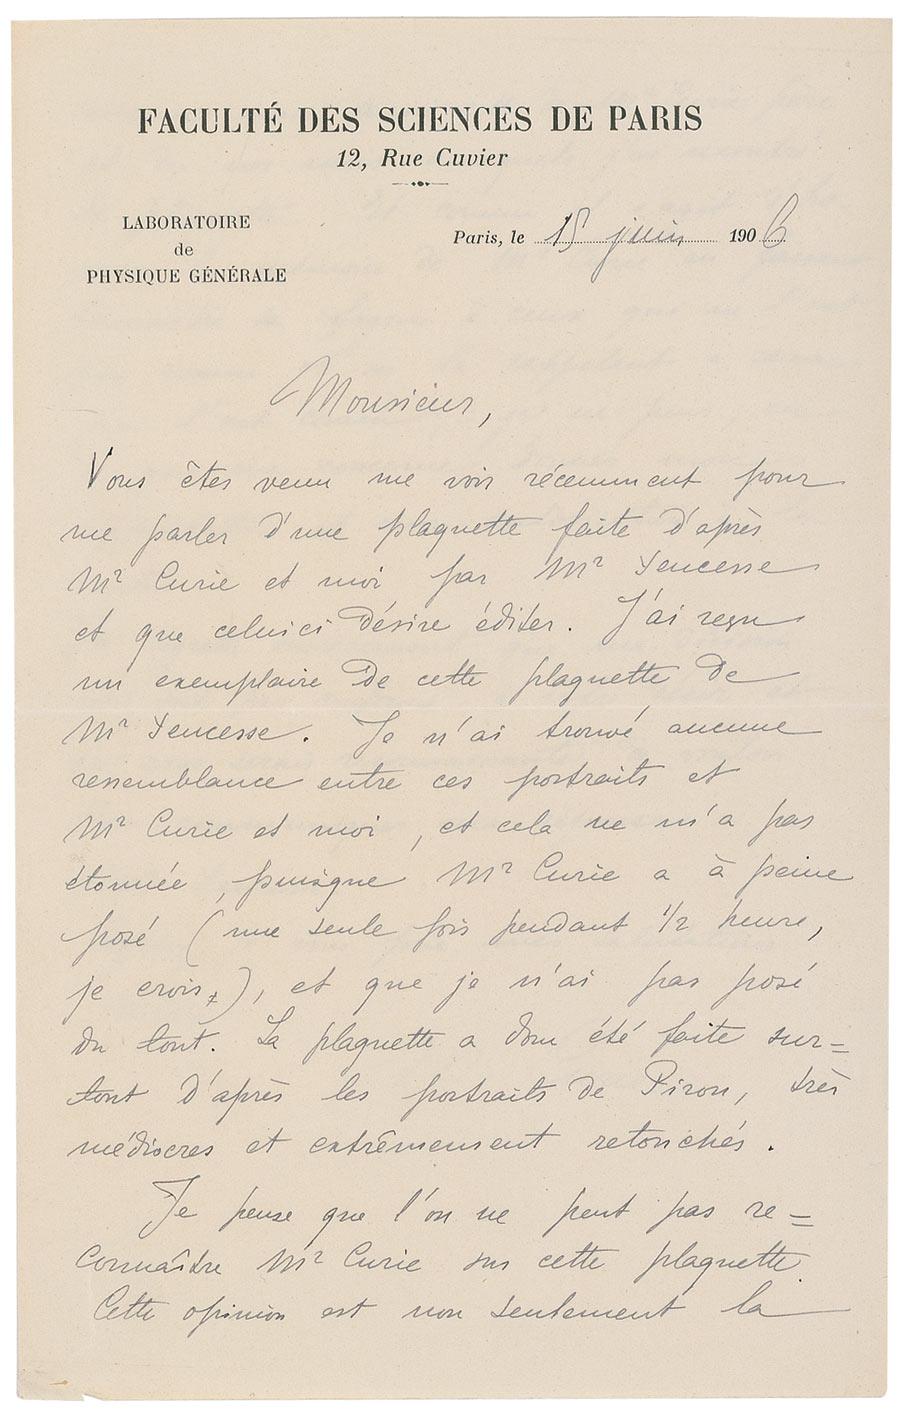 FACULTÉ DES SCIENCES DE PARIS
12, Rue Cuvier
LABORATOIRE
de
PHYSIQUE GÉNÉRALE
Paris, le 15 juin 1906
Monsieur,
Vous êtes venu me voir récemment pour
me parler d'une plaquette faite d'après
Mr Curie et moi par Mr Yencesse
et que celui ci désire éditer. J'ai reçu
un exemplaire de cette plaquette de
Mr Yencesse. Je n'ai trouvé aucune
ressemblance entre ces portraits et
Mr Curie et moi, et cela ne m'a pas
étonnée, puisque Mr Curie a à peine
posé (une seule fois pendant 1/2 heure,
je crois), et que je n'ai pas posé
du tout. La plaquette a donc été faite sur=
tout d'après les portraits de Pirou, très
médiocres et extrêmement retouchés.
Je pense que l'on ne peut pas re=
connaître Mr Curie sur cette plaquette.
Cette opinion est non seulement la